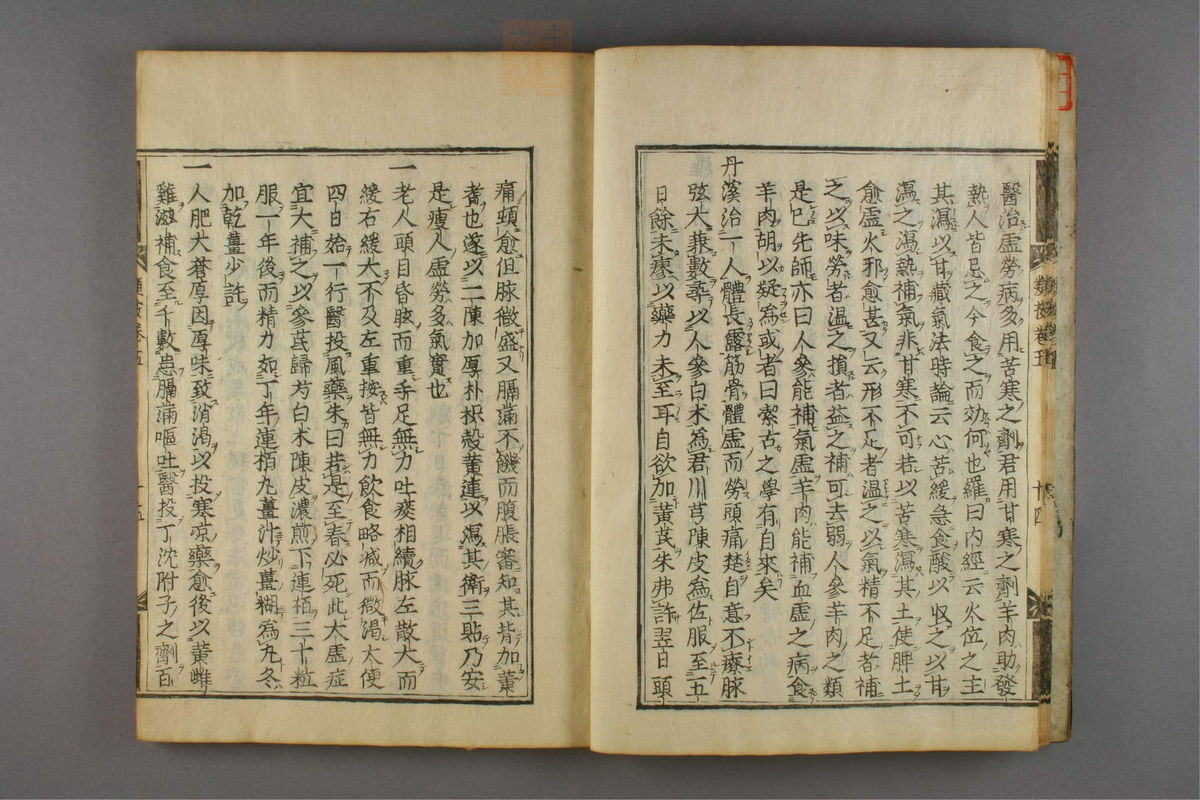 醫治虛勞病多用苦寒之劑君用甘寒之劑羊肉助發
熱人皆忌之今食之而効何也羅曰內經云火位之主
其瀉以甘藏氣法時論云心苦緩急食酸以收之以甘
瀉之瀉熱補氣非甘寒不可若以苦寒瀉其土使脾土
愈虛火邪愈甚又云形不足者温之以氣精不足者補
之以味勞者温之損者益之補可去弱人參羊肉之類
是已先師亦曰人參能補氣虛羊肉能補血虛之病食
羊肉胡以疑為或者曰絜古之學有自來矣
丹溪治一人體長露筋骨體虛而勞頭痛楚自意不療脉
弦大兼數薬以人參白朮為君川芎陳皮為佐服至五
日餘未瘳以藥力未至耳自欲加黃芪朱弗許翌日頭
痛頓愈但脉微盛又膈滿不饑而腹脹審知其背加黃
耆也遂以二陳加厚朴枳殼黃連以瀉其衛三貼乃安
是瘦人虛勞多氣實也
一老人頭目昏眩而重手足無力吐痰相續脉左散大而
緩右緩大不及左重按皆無力飲食略减而微渴大便
四日始一行醫投風藥朱曰若是至春必死此大虛症
宜大補之以參芪歸芍白朮陳皮濃煎下連栢三十粒
服一年後而精力如丁年連栢丸薑汁炒薑糊為丸冬
加乾薑少許
一人肥大蒼厚因厚味致消渴以投寒凉藥愈後以黃雌
雞滋補食至千數患膈滿嘔吐醫投丁沈附子之劑百
類按卷五
十四